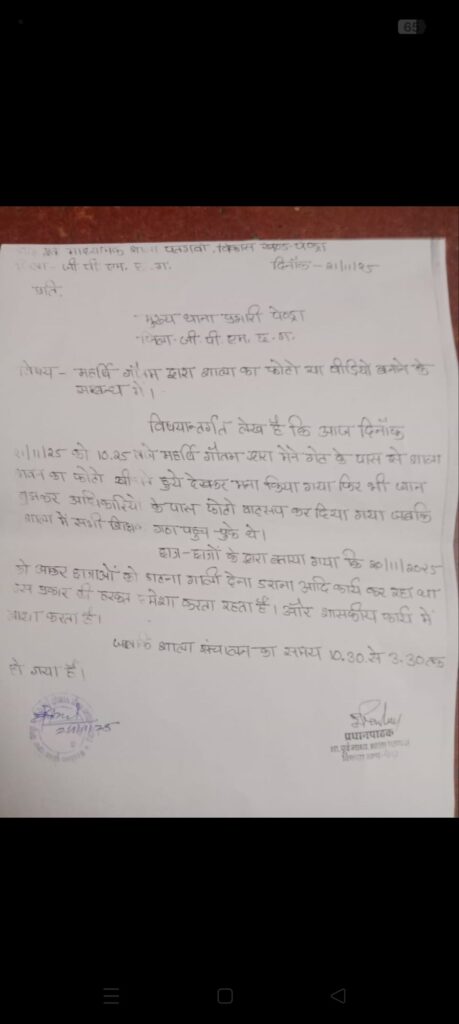 65
माध्यमिक शाला पतगवां, विकास खण्ड-पेण्ड्रा
जिला - जी पी एम, छ. ग. दिनाँक - 21/11/25
प्रति,
मुख्य थाना प्रभारी पेण्ड्रा
जिला-जी पी एम, छ. ग.
विषय - महर्षि गौतम द्वारा शाला का फोटो या वीडियो बनाने के
सम्बन्ध में।
विषयान्तर्गत लेख है कि आज दिनाँक
21/11/25 को 10.25 बजे महर्षि गौतम द्वारा मेन गेट के पास से शाला
भवन का फोटो हुये देखकर मना किया गया फिर भी
अधिकारियो के पास फोटो वाटसप कर दिया गया जबकि
शाला में सभी शिक्षक पहुच चुके थे।
छात्र-छात्रों के द्वारा बताया गया कि 20/11/2025
को आकर छात्राओं को गाली देना डराना आदि कार्य कर रहा था
इस प्रकार की हरकत हमेशा करता रहता है। और शासकीय कार्य में
बाधा करता है।
जबकि शाला संचालन का समय 10.30 से 3.30 तक
हो गया है।
21/11/25
प्रधानपाठक
शा. पूर्व माध्य. शाला